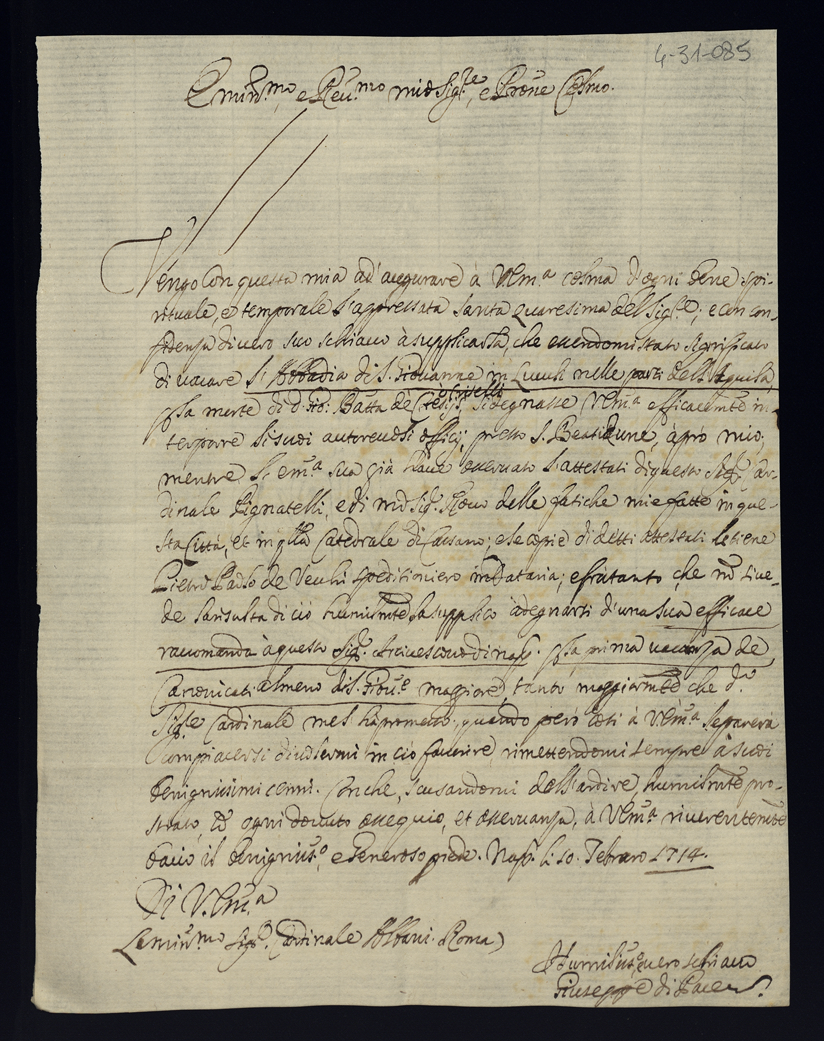 4-31-085
Emin.mo e Reu.mo mio Sig.re, e Prone Colmo.
Vengo con questa mia ad augurare à V.Em.a colma d'ogni bene spi-
rituale, e temporale l'appressata santa Quaresima del Sig.re; e con con-
fidenza di vero suo schiavo à supplicarla, che essendomi stato significato
di vacare l'Abbadia di S. Giovanne in Lucoli nelle parti dell'Aquila,
p la morte di D. Gio: Batta de si degnasse V.Em.a efficacemte in-
terporre li suoi autorevoli officij, presso S. Beatidune, à prò mio;
mentre S. Em.a sua già have osservato l'attestati di questo Sig.r Car-
dinale Pignatelli, e di mio Sig.r delle fatiche mie fatte in que-
sta Città, et in qlla Catedrale di Cassano; e le copie di detti attestati le tiene
Pietro Paolo de Vecchi speditioniero in Dataria; e frà tanto, che si ve-
de la risulta di ciò humilmte la supplico à degnarsi d'una sua efficace
raccomanda à questo Sig.r Arcivescovo di Nap. p la prima vacanza de
Canonicati almeno di S. Giov.e maggiore, tanto maggiormte che d.o
Sig.re Cardinale me l'hà promesso, quando però così à V.Em.a le parerà
compiacersi di volermi in ciò favorire, rimettendomi sempre à suoi
benignissimi cenni. Con che, scusandomi dell'ardire, humilmte pro-
strato, cō ogni dovuto ossequio, et osservanza, à V.Em.a riverentemte
bacio il benigniss.o, e generoso piede. Nap. li 10. Febraro 1714.
Di V.Em.a
Emin.mo Sig.r Cardinale Albani. Roma)
Humiliss.o, e vero schiavo
Giuseppe di Pace